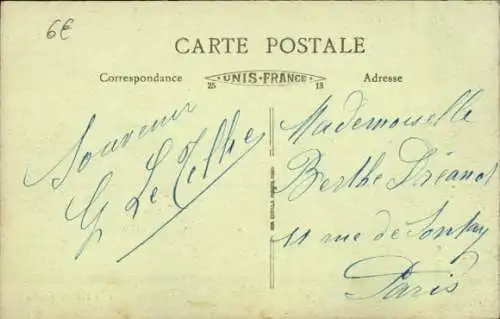 6€
CARTE POSTALE
Correspondance
UNIS-FRANCE
25
13
Adresse
Souvenir
G Le
Mademoiselle
Berthe Dréanot
11 rue de Pontay
Paris